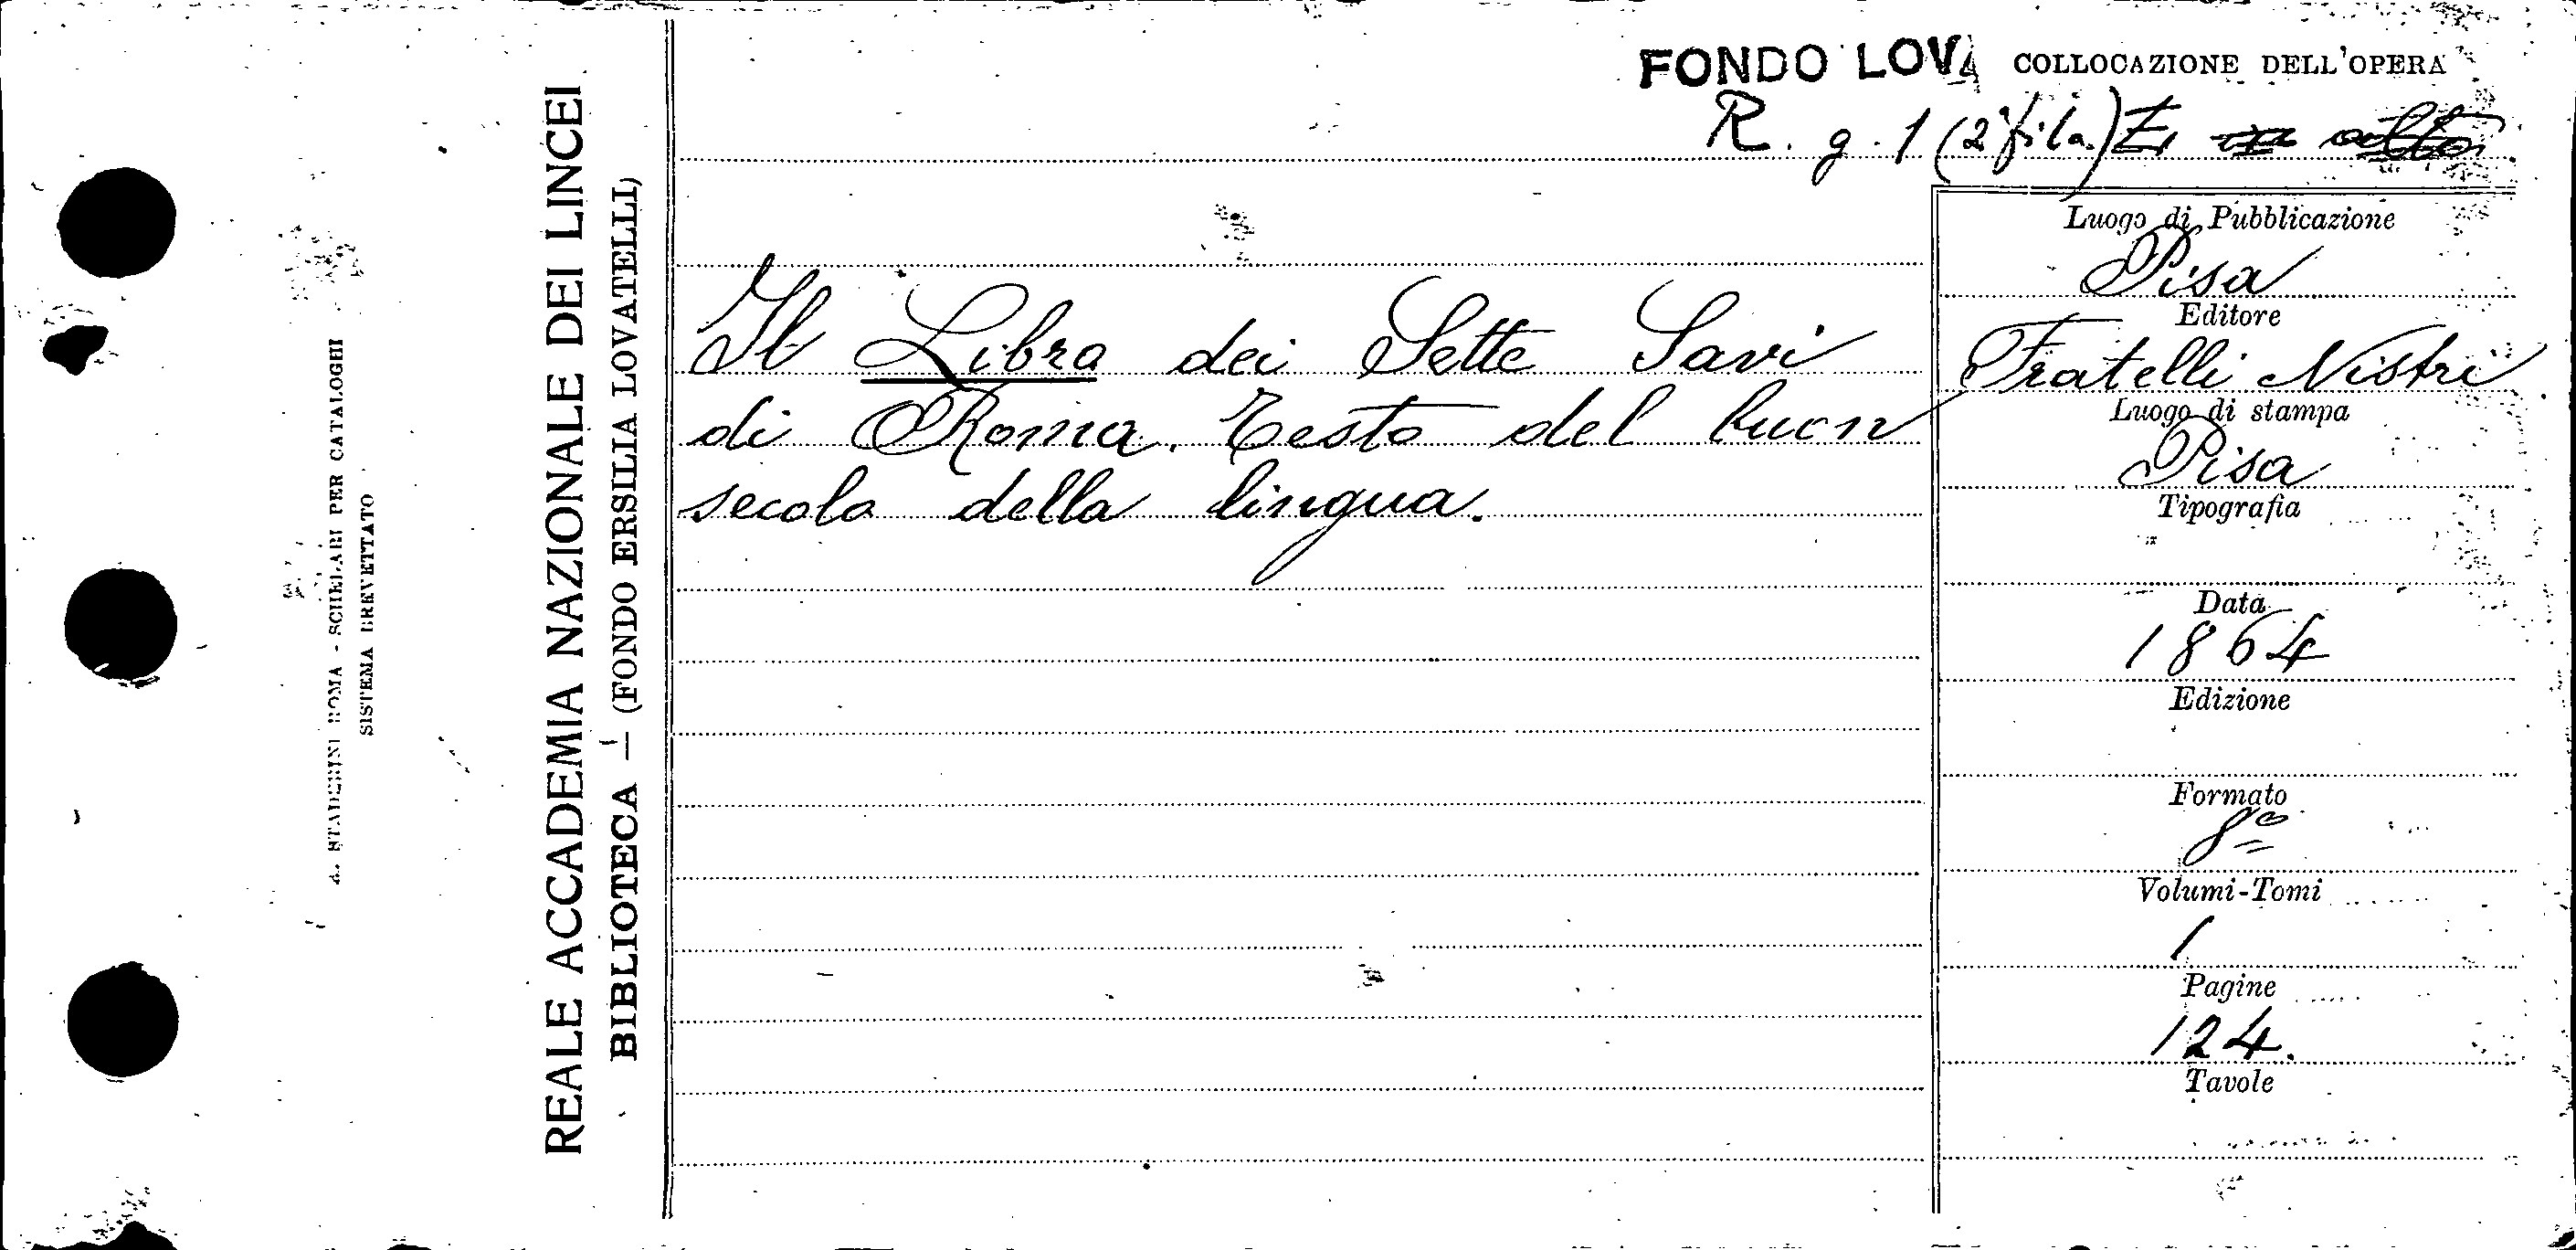 FONDO LOVA COLLOCAZIONE DELL'OPERA
R. g. 1 (2ª fila)
REALE ACCADEMIA NAZIONALE DEI LINCEI
BIBLIOTECA — (FONDO ERSILIA LOVATELLI)
A. STADERINI ROMA - SCHEDARI PER CATALOGHI
SISTEMA BREVETTATO
Il Libro dei Sette Savi
di Roma. Testo del buon
secolo della lingua.
Luogo di Pubblicazione
Pisa
Editore
Fratelli Nistri
Luogo di stampa
Pisa
Tipografia
Data
1864
Edizione
Formato
8º
Volumi-Tomi
1
Pagine
124.
Tavole